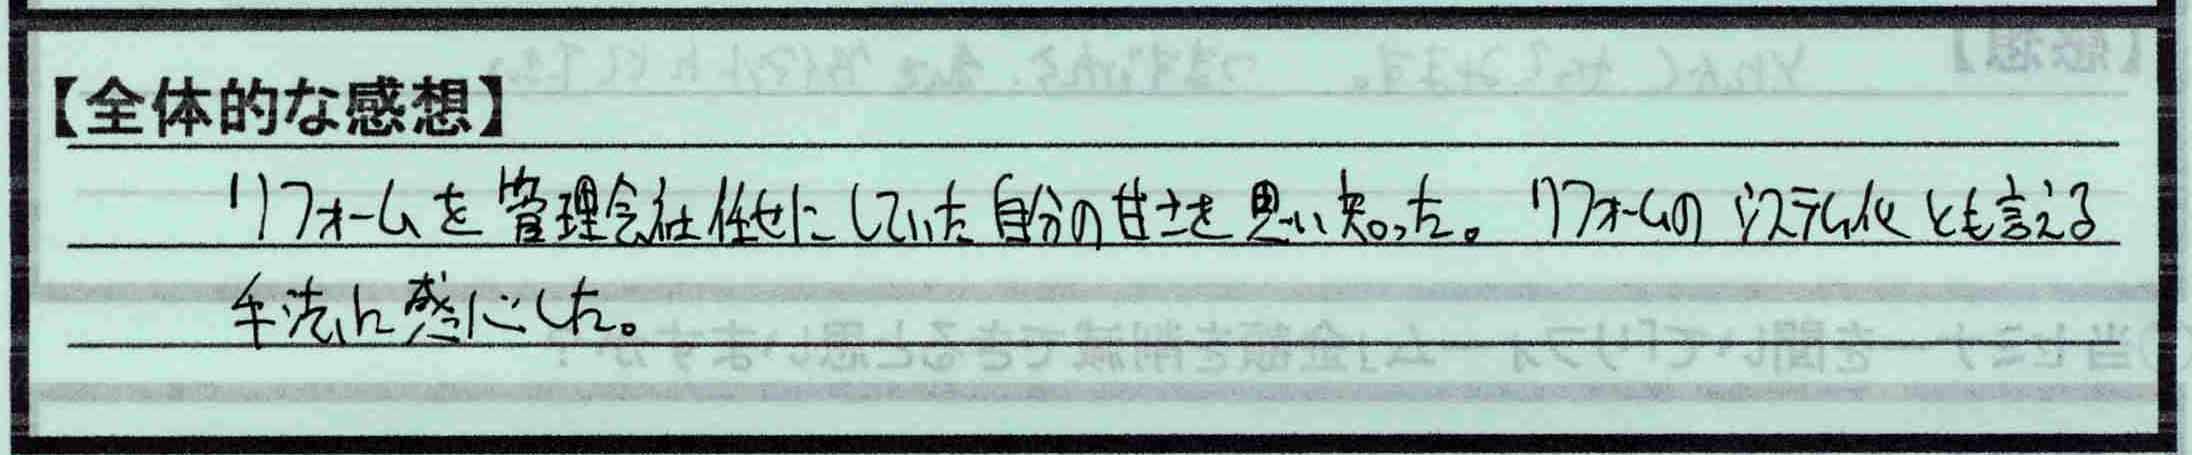 【全体的な感想】
リフォームを管理会社任せにしていた自分の甘さを思い知った。リフォームのシステム化とも言える
手法に感心した。